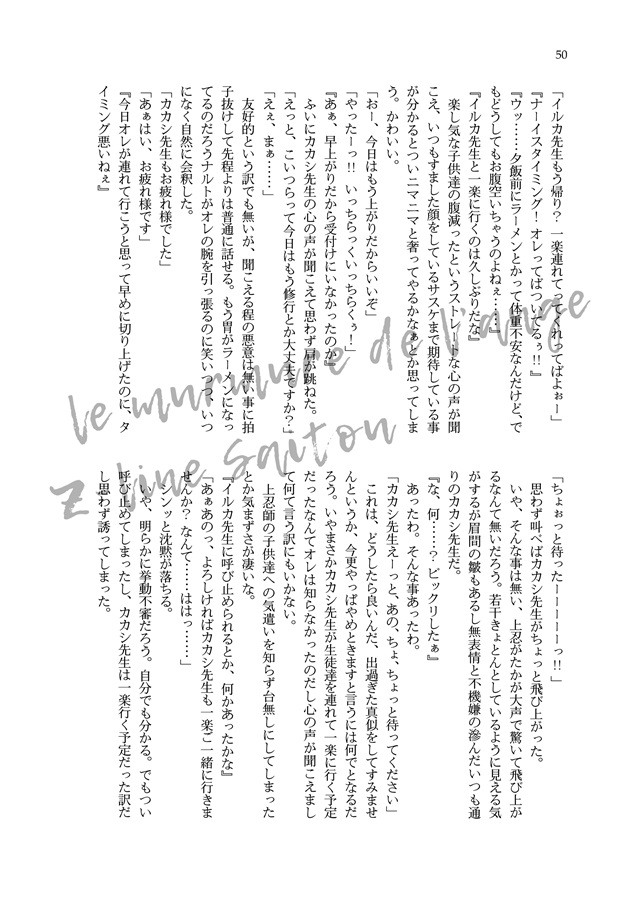 50
「イルカ先生もう帰り？一楽連れてってくれってばよぉー」
『ナーイスタイミング！オレってばついてるぅ!!』
『ウッ……夕飯前にラーメンとかって体重不安なんだけど、で
もどうしてもお腹空いちゃうのよねぇ……』
『イルカ先生と一楽に行くのは久しぶりだな』
楽し気な子供達の腹減ったというストレートな心の声が聞
こえ、いつもすました顔をしているサスケまで期待している事
が分かるとついニマニマと奢ってやるかなぁとか思ってしま
う。かわいい。
「おー、今日はもう上がりだからいいぞ」
「やったーっ!!いっちらっくいっちらくぅ！」
『あぁ、早上がりだから受付にいなかったのか』
ふいにカカシ先生の心の声が聞こえて思わず肩が跳ねた。
「えっと、こいつらって今日はもう修行とか大丈夫ですか？」
「えぇ、まぁ……」
友好的という訳でも無いが、聞こえる程の悪意は無い事に拍
子抜けして先程よりは普通に話せる。もう胃がラーメンになっ
てるのだろうナルトがオレの腕を引っ張るのに笑いつつ、いつ
になく自然に会釈した。
「カカシ先生もお疲れ様でした」
「あぁはい、お疲れ様です」
『今日オレが連れて行こうと思って早めに切り上げたのに、タ
イミング悪いねぇ』
「ちょぉっと待ったーーーーーっ!!」
思わず叫べばカカシ先生がちょっと飛び上がった。
いや、そんな事は無い、上忍がたかが大声で驚いて飛び上が
るなんて無いだろう。若干きょとんとしているように見える気
がするが眉間の皺もあるし無表情と不機嫌の滲んだいつも通
りのカカシ先生だ。
『な、何……？ビックリしたぁ』
あったわ。そんな事あったわ。
「カカシ先生えーっと、あの、ちょ、ちょっと待ってください」
これは、どうしたら良いんだ、出過ぎた真似をしてすみませ
んというか、今更やっぱやめときますと言うには何でとなるだ
ろう。いやまさかカカシ先生が生徒達を連れて一楽に行く予定
だったなんてオレは知らなかったのだし心の声が聞こえまし
て何て言う訳にもいかない。
上忍師の子供達への気遣いを知らず台無しにしてしまった
とか気まずさが凄いな。
『イルカ先生に呼び止められるとか、何かあったかな』
「あぁあのっ、よろしければカカシ先生も一楽ご一緒に行きま
せんか？なんて……ははっ……」
シンッと沈黙が落ちる。
いや、明らかに挙動不審だろう。自分でも分かる。でもつい
呼び止めてしまったし、カカシ先生は一楽行く予定だった訳だ
し思わず誘ってしまった。
le murmure de l'ange
Z line Saiton